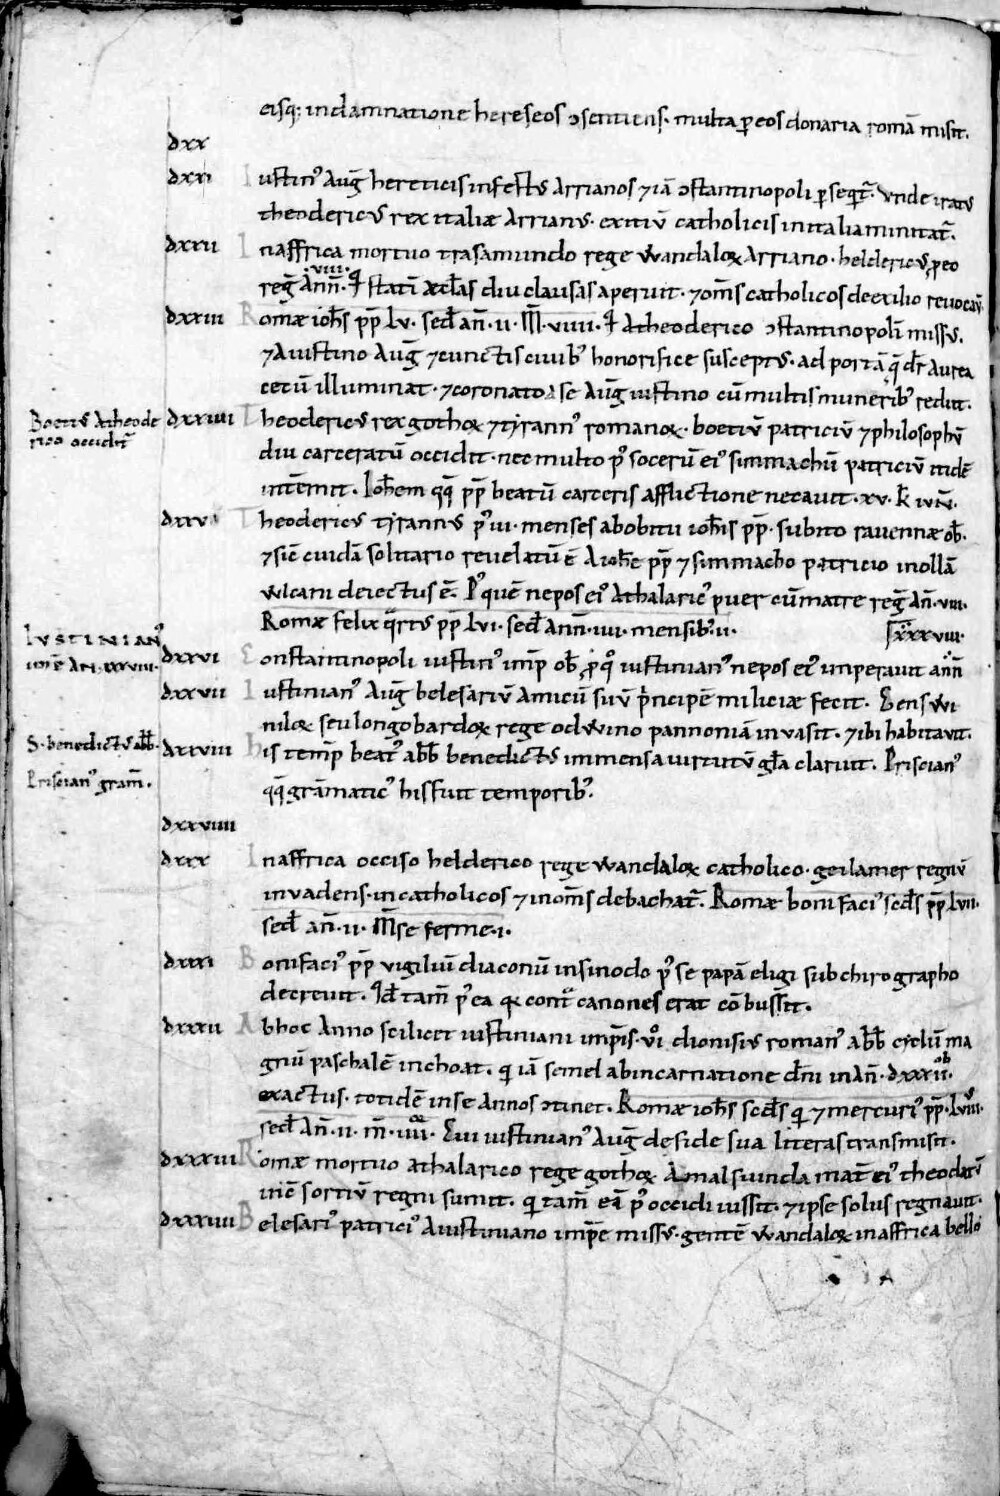 eisq; in damnatione hereseos ɔsentiens· multa ꝑ eos donaria romā misit.
dxx
dxxi Iustin᷒ Aug̅ hereticis infestus Arrianos ⁊ iā ɔstantinopoli ꝑseqt̄. Vnde iratus
theodericus rex italiæ Arrianus· exitiū catholicis in italia minitat̄.
dxxii In affrica mortuo trasamundo rege wandaloꝝ Arriano· heldericus ꝓ eo
reg̅ Ann̄. viii. q statī æcl̄as diu clausas aperuit· ⁊ om̄s catholicos de exilio reuocauit
dxxiii Romæ ioh̄s pp̄ Lv. sed̄ an̄· ii· M̅· viiii. q A theoderico ɔstantinopoli missus.
⁊ A iustino Aug̅ ⁊ cunctis ciuib᷒ honorifice susceptus· ad portā q̨ dr̄ Aurea
cecū illuminat· ⁊ coronato A se Aug̅ iustino cū multis munerib᷒ rediit.
Boetius A theode
rico occidit̄
dxxiiii Theodericus rex gothoꝝ ⁊ tyrann᷒ romanoꝝ· boetiū patriciū ⁊ philosophū
diu carceratū occidit· nec multo p᷒ socerū ei᷒ simmachū patriciū itidē
interemit. Ioh̄em qq̨ pp̄ beatū carceris afflictione necauit· xv· k̄ iun̄.
dxxv Theodericus tyrannus p᷒ iii· menses ab obitu ioh̄is pp̄· subito rauennæ ob̄·
⁊ sic̄ cuidā solitario reuelatū ē A ioh̄e pp̄ ⁊ simmacho patricio in ollā
wlcani deiectus ē. P᷒ quē nepos ei᷒ Athalaric᷒ puer cū matre reg̅ An̄· viii·
Romæ felix q̄rtus pp̄ Lvi· sed̄ Ann̄· iiii· mensib᷒· ii·
xxxviii·
IVSTINIAN᷒
imp̄ An· xxxviii·
dxxvi Constantinopoli iustin᷒ imp̄ ob̄· ꝓ q᷒ iustinian᷒ nepos ei᷒ imperauit ann̄
dxxvii Iustinian᷒ Aug̅ belesariū Amicū suū principē miliciæ fecit. Gens wi
niloꝝ seu longobardoꝝ rege odwino pannoniā inuasit· ⁊ ibi habitauit.
S· benedictus abb̄·
dxxviii His temp̄ beat᷒ abb̄ benedictus immensa uirtutū gl̄a claruit. Priscian᷒
Priscian᷒ gram̄.
qq̨ grāmatic᷒ his fuit temporib᷒.
dxxviiii
dxxx In affrica occiso helderico rege wandaloꝝ catholico· geilamer regnū
inuadens· in catholicos ⁊ in om̄s debachat̄. Romæ bonifaci᷒ scd̄s pp̄ Lvii·
sed̄ an̄· ii· M̅se ferme· i·
dxxxi Bonifaci᷒ pp̄ vigiliū diaconū in sinodo p᷒ se papā eligi sub chirographo
decreuit. Id̄ tam̄ p᷒ ea q̨ cont̄ canones erat cōbussit.
dxxxii Ab hoc Anno scilicet iustiniani imp̄is· vi᷒ dionisius roman᷒ abb̄ cyclū ma
gnū paschalē inchoat· qi iā semel ab incarnatione dn̄i in An̄· dxxxii·
exactus· totidē in se Annos ɔtinet. Romæ ioh̄s scd̄s qi ⁊ mercuri᷒ pp̄· Lviii·
sed̄ An̄· ii· m̄· iiii. Cui iustinian᷒ Aug̅ de fide sua literas transmisit.
dxxxiii Romæ mortuo athalarico rege gothoꝝ Amalsuinda mat̄ ei᷒ theodatū
in c̄sortiū regni sumit. qi tam̄ eā p᷒ occidi iussit· ⁊ ipse solus regnauit.
dxxxiiii Belesari᷒ patrici᷒ A iustiniano imp̄e missus· gentē wandaloꝝ in affrica bello